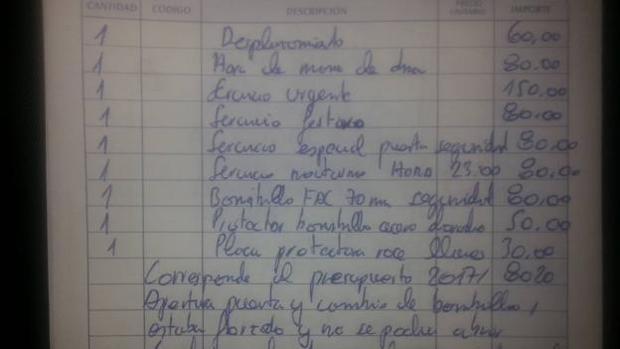 CANTIDAD CODIGO DESCRIPCIÓN PRECIO UNITARIO IMPORTE
1 Desplazamiento 60,00
1 Hora de mano de obra 80.00
1 Servicio urgente 150,00
1 Servicio festivo 80.00
1 Servicio especial puerta seguridad 80.00
1 Servicio nocturno Hora 23:00 80.00
1 Bombillo FAC 70 mm seguridad 80,00
1 Protector bombillo acero 50.00
1 Placa protectora 30,00
Corresponde al presupuesto 2017/ 8020
Apertura puerta y cambio de bombillo,
estaba forzado y no se podia abrir